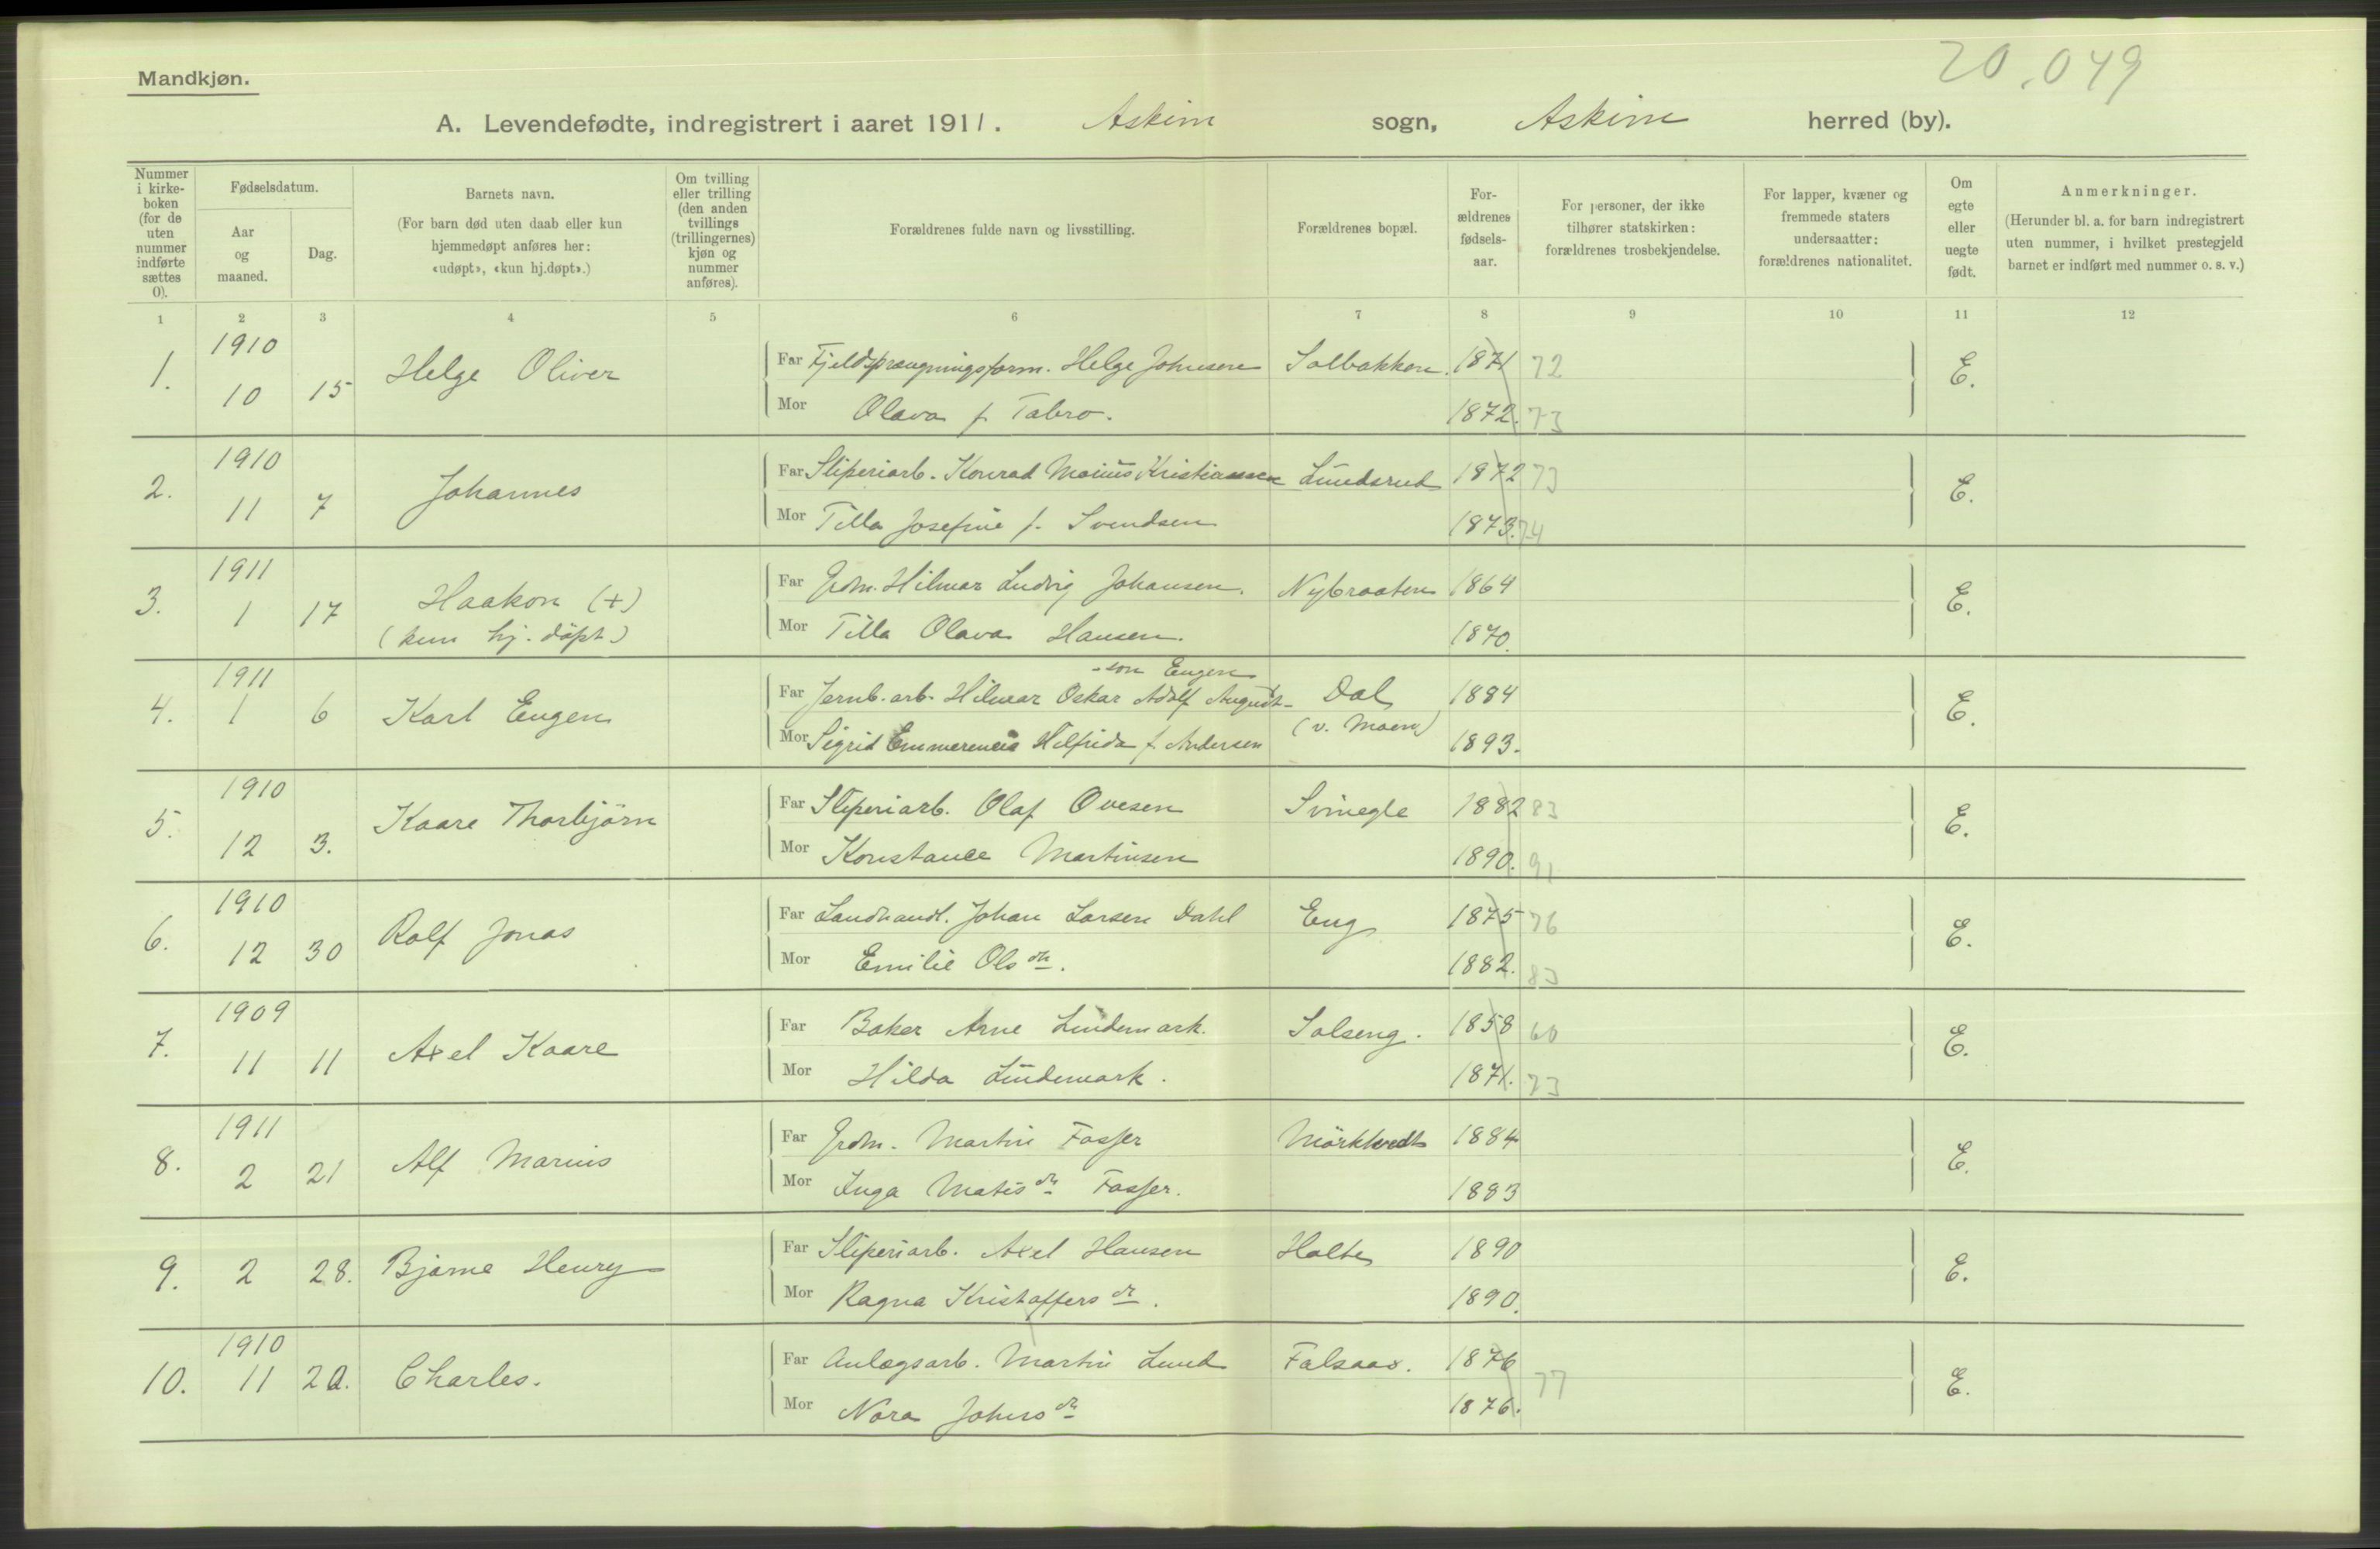 20.049
Mandkjøn.
A. Levendefødte, indregistrert i aaret 1911. Askim sogn, Askim herred (by).
Nummer i kirkeboken (for de uten nummer indførte sættes 0).
Fødselsdatum.
Aar og maaned.
Dag.
Barnets navn.
(For barn død uten daab eller kun hjemmedøpt anføres her: «udøpt», «kun hj.døpt».)
Om tvilling eller trilling (den anden tvillings (trillingernes) kjøn og nummer anføres).
Forældrenes fulde navn og livsstilling.
Forældrenes bopæl.
Forældrenes fødselsaar.
For personer, der ikke tilhører statskirken: forældrenes trosbekjendelse.
For lapper, kvæner og fremmede staters undersaatter: forældrenes nationalitet.
Om egte eller uegte født.
Anmerkninger.
(Herunder bl. a. for barn indregistrert uten nummer, i hvilket prestegjeld barnet er indført med nummer o. s. v.)
1 2 3 4 5 6 7 8 9 10 11 12
1. 1910 10 15 Helge Oliver Far Fjeldsprængningsform. Helge Johnsen Solbakken. 1871 72 E.
Mor Olava f. Tabro. 1872. 73
2. 1910 11 7 Johannes Far Sliperiarb. Konrad Marius Kristiansen Lundsrud 1872 73 E.
Mor Tilla Josefine f. Svendsen 1873. 74
3. 1911 1 17 Haakon (+) Far Grdm. Hilmar Ludvig Johansen. Nybraaten 1864 E.
(kun hj. döpt) Mor Tilla Olava Hansen. 1870.
-son Eugen
4. 1911 1 6 Karl Eugen Far Jernb. arb. Hilmar Oskar Adolf August- Dal 1884 E.
(v. Moen)
Mor Sigrid Emmerencia Helfrida f. Andersen 1893.
5. 1910 12 3. Kaare Thorbjörn Far Sliperiarb. Olaf Ovesen Svinegle 1882 83 E.
Mor Konstance Martinsen 1890. 91
6. 1910 12 30 Rolf Jonas Far Landhandl. Johan Larsen Dahl Eng 1875 76 E.
Mor Emilie Olsdtr. 1882. 83
7. 1909 11 11 Axel Kaare Far Baker Arne Lindemark. Solseng. 1858 60 E.
Mor Hilda Lindemark. 1871. 73
8. 1911 2 21 Alf Marius Far Grdm. Martin Fosser 1884 E.
Mor Inga Matisdtr Fosser. 1883
9. 2 28. Bjarne Henry Far Sliperiarb. Axel Hansen Holte 1890 E.
Mor Ragna Kristoffersdtr. 1890.
10. 1910 11 20. Charles. Far Anlægsarb. Martin Lund 1876 77 E.
Mor Nora Johnsdtr 1876.